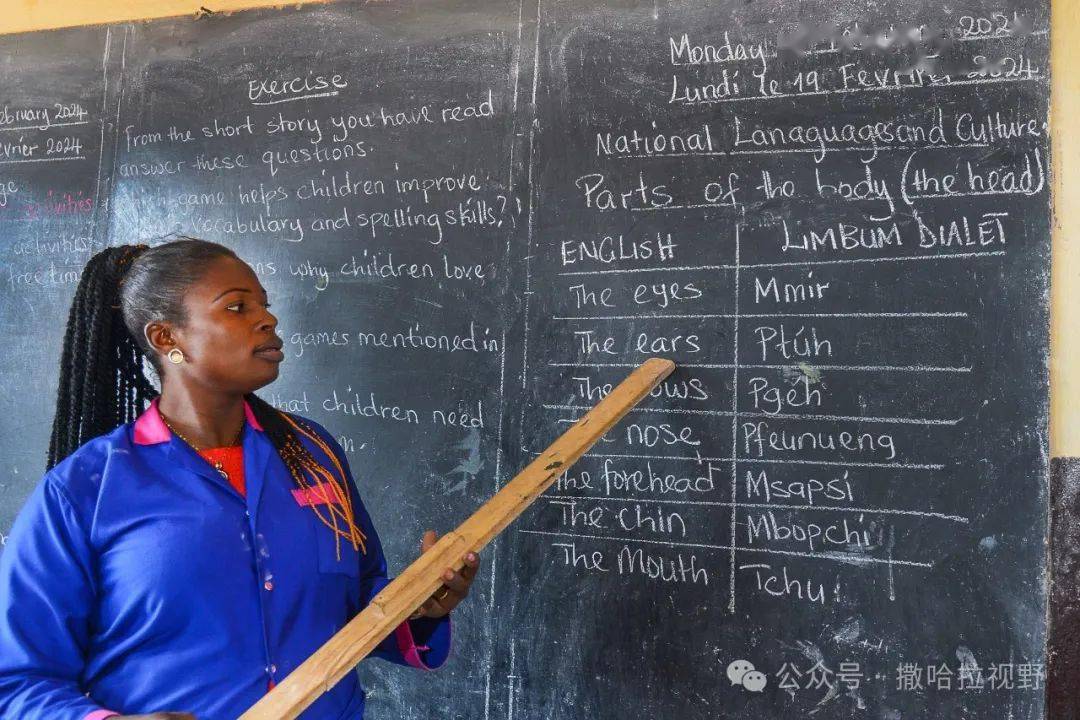 ebruary 2024
évrier 2024
activities
activities
free tim
Exercise
From the short story you have read
answer these questions.
game helps children improve
vocabulary and spelling skills?
why children love
games mentioned in
that children need
Monday 2024
Lundi le 19 Fevrier 2024
National Lanaguages and Culture.
Parts of the body (the head)
ENGLISH
LIMBUM DIALET
The eyes
Mmir
The ears
Ptúh
The
Pgéh
The nose
Pfeunueng
The forehead
Msapsi
The chin
Mbopchi
The Mouth
Tchu
公众号 · 撒哈拉视野